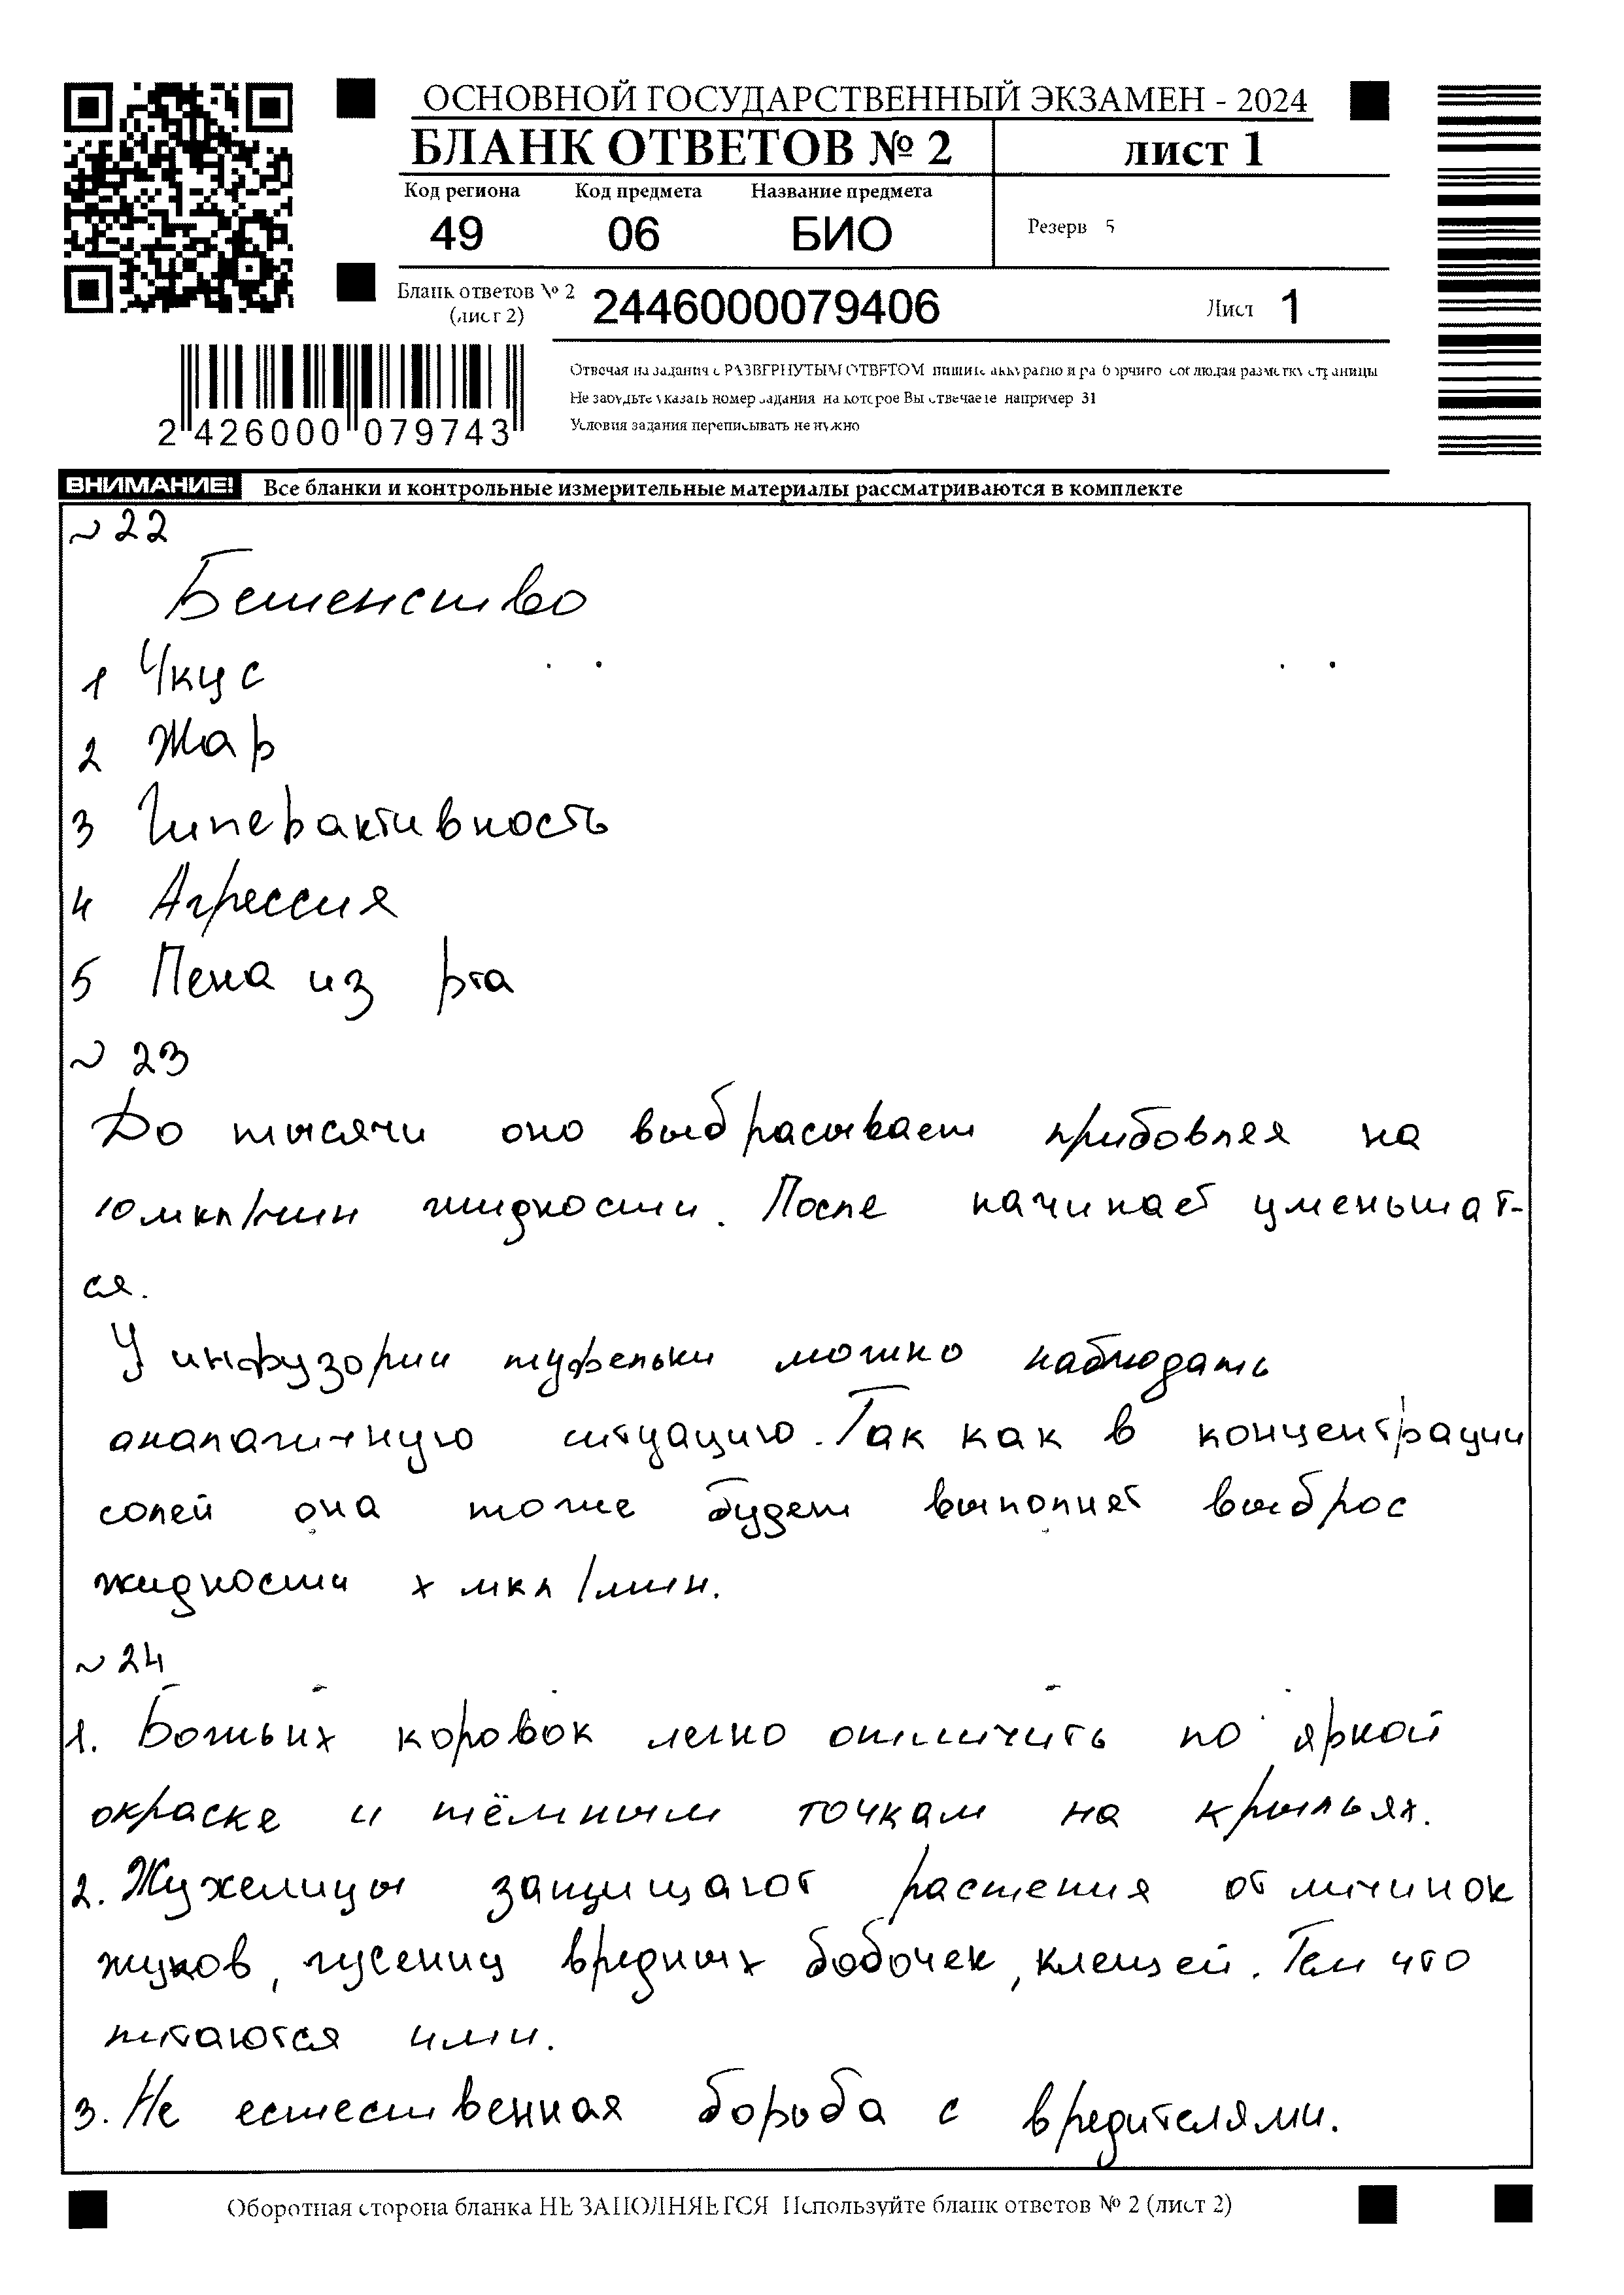 ОСНОВНОЙ ГОСУДАРСТВЕННЫЙ ЭКЗАМЕН - 2024
БЛАНК ОТВЕТОВ № 2 лист 1
Код региона Код предмета Название предмета
49 06 БИО
Резерв 5
Бланк ответов № 2
(лист 2)
2446000079406
Лист 1
2 426000 079743
Отвечая на задания с РАЗВЕРНУТЫМ ОТВЕТОМ пишите аккуратно и разборчиво соблюдая разметку страницы
Не забудьте указать номер задания на которое Вы отвечаете например 31
Условия задания переписывать не нужно
ВНИМАНИЕ! Все бланки и контрольные измерительные материалы рассматриваются в комплекте
~ 22
Бешенство
1 Укус
2 Жар
3 Гиперактивность
4 Агрессия
5 Пена из рта
~ 23
До тысячи оно выбрасывает прибовляя на
10 мкл/мин жидкости. После начинает уменьшат-
ся.
У инфузории туфельки можно наблюдать
аналагичную ситуацию. Так как в концентрации
солей она тоже будет выполнят выброс
жидкости х мкл/мин.
~ 24
1. Божьих коровок легко отличить по яркой
окраске и тёмным точкам на крыльях.
2. Жужелицы защищают растения от личинок
жуков, гусениц вредных бобочек, клещей. Тем что
питаются ими.
3. Не естественная борьба с вредителями.
Оборотная сторона бланка НЕ ЗАПОЛНЯЕТСЯ Используйте бланк ответов № 2 (лист 2)